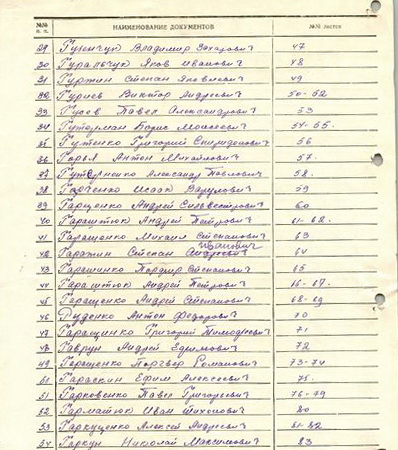 №№ п. п. НАИМЕНОВАНИЕ ДОКУМЕНТОВ №№ листов
29 Владимир Захарович 47
30 Гуральчук Яков Иванович 48
31 Гуржин Степан Яковлевич 49
32 Гуриев Виктор Андреевич 50-52
33 Гусов Павел Александрович 53
34 Гутерман Борис Моисеевич 54-55.
35 Гутенко Григорий Спиридонович 56
36 Антон Михайлович 57.
37 Александр Павлович 58.
38 Исаак 59
39 Гаращенко Андрей Сильвестрович 60
40 Гараштюк Андрей Петрович 61-62.
41 Гаращенко Михаил Степанович 63
Иванович
42 Гаражин Степан 64
43 Степанович 65
44 Гараштюк Андрей Петрович 66-67.
45 Гаращенко Андрей Степанович 68-69
46 Дуденко Антон Федорович 70
47 Гаращенко Григорий Тимофеевич 71
48 Гаврун Андрей Ефимович 72
49 Романович 73-74
50 Гараскин Ефим Алексеевич 75.
51 Гарковенко Павел Григорьевич 76-79
52 Гарматюк Иван Тихонович 80
53 Гаркуценко Алексей Андреевич 81-82
54 Гаркун Николай Максимович 83